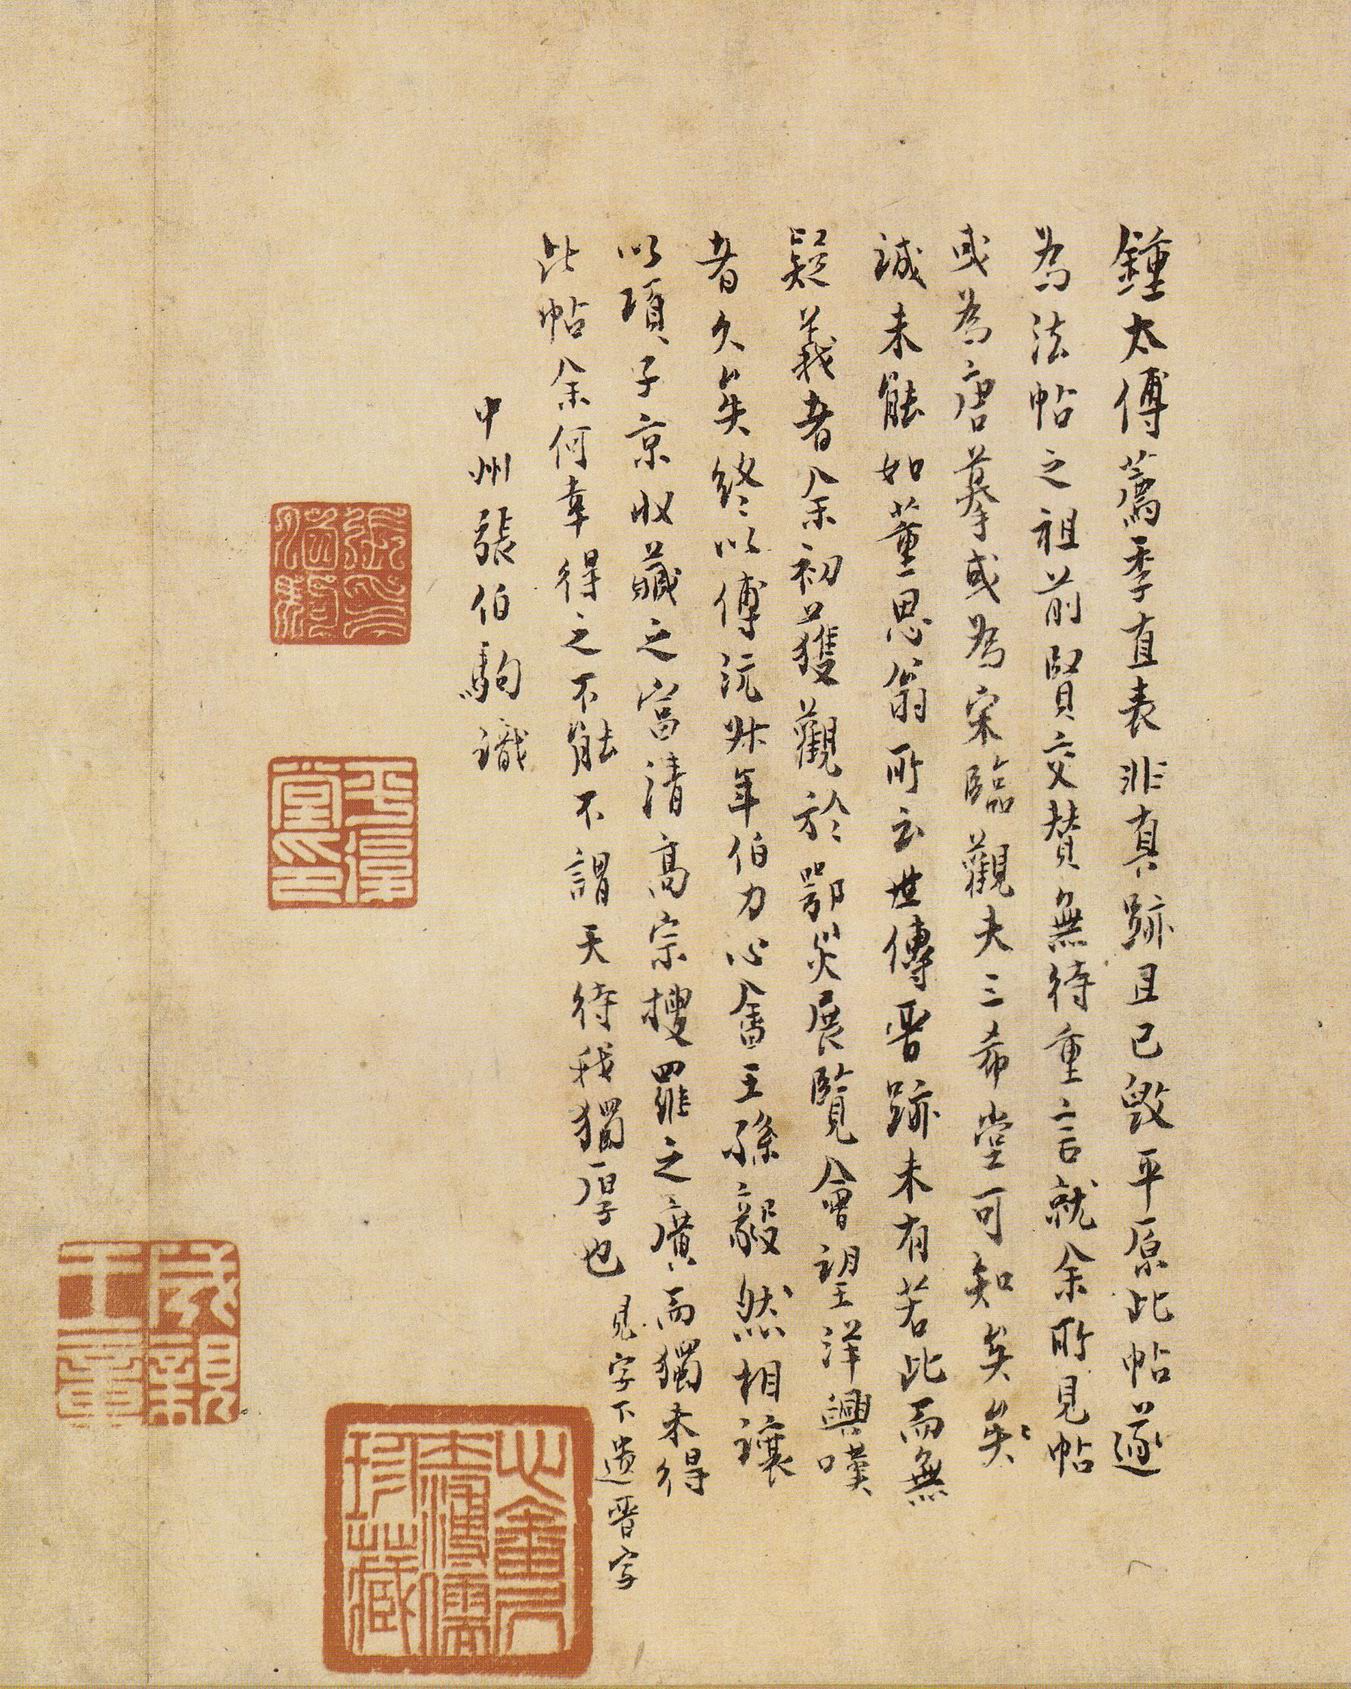 鍾太傅薦季直表非真跡且已毀平原此帖遂
為法帖之祖前賢交贊無待重言就余所見帖
或為唐摹或為宋臨觀夫三希堂可知矣矣
誠未能如董思翁所云世傳晉跡未有若此而無
疑義者余初獲觀於鄂災展覽會望洋興嘆
者久矣終以傅沅叔年伯力心畬王孫毅然相讓
以項子京收藏之富清高宗搜羅之廣而獨未得
此帖余何幸得之不能不謂天待我獨厚也 見字下遺晉字
中州張伯駒識
平復堂印
成親王章